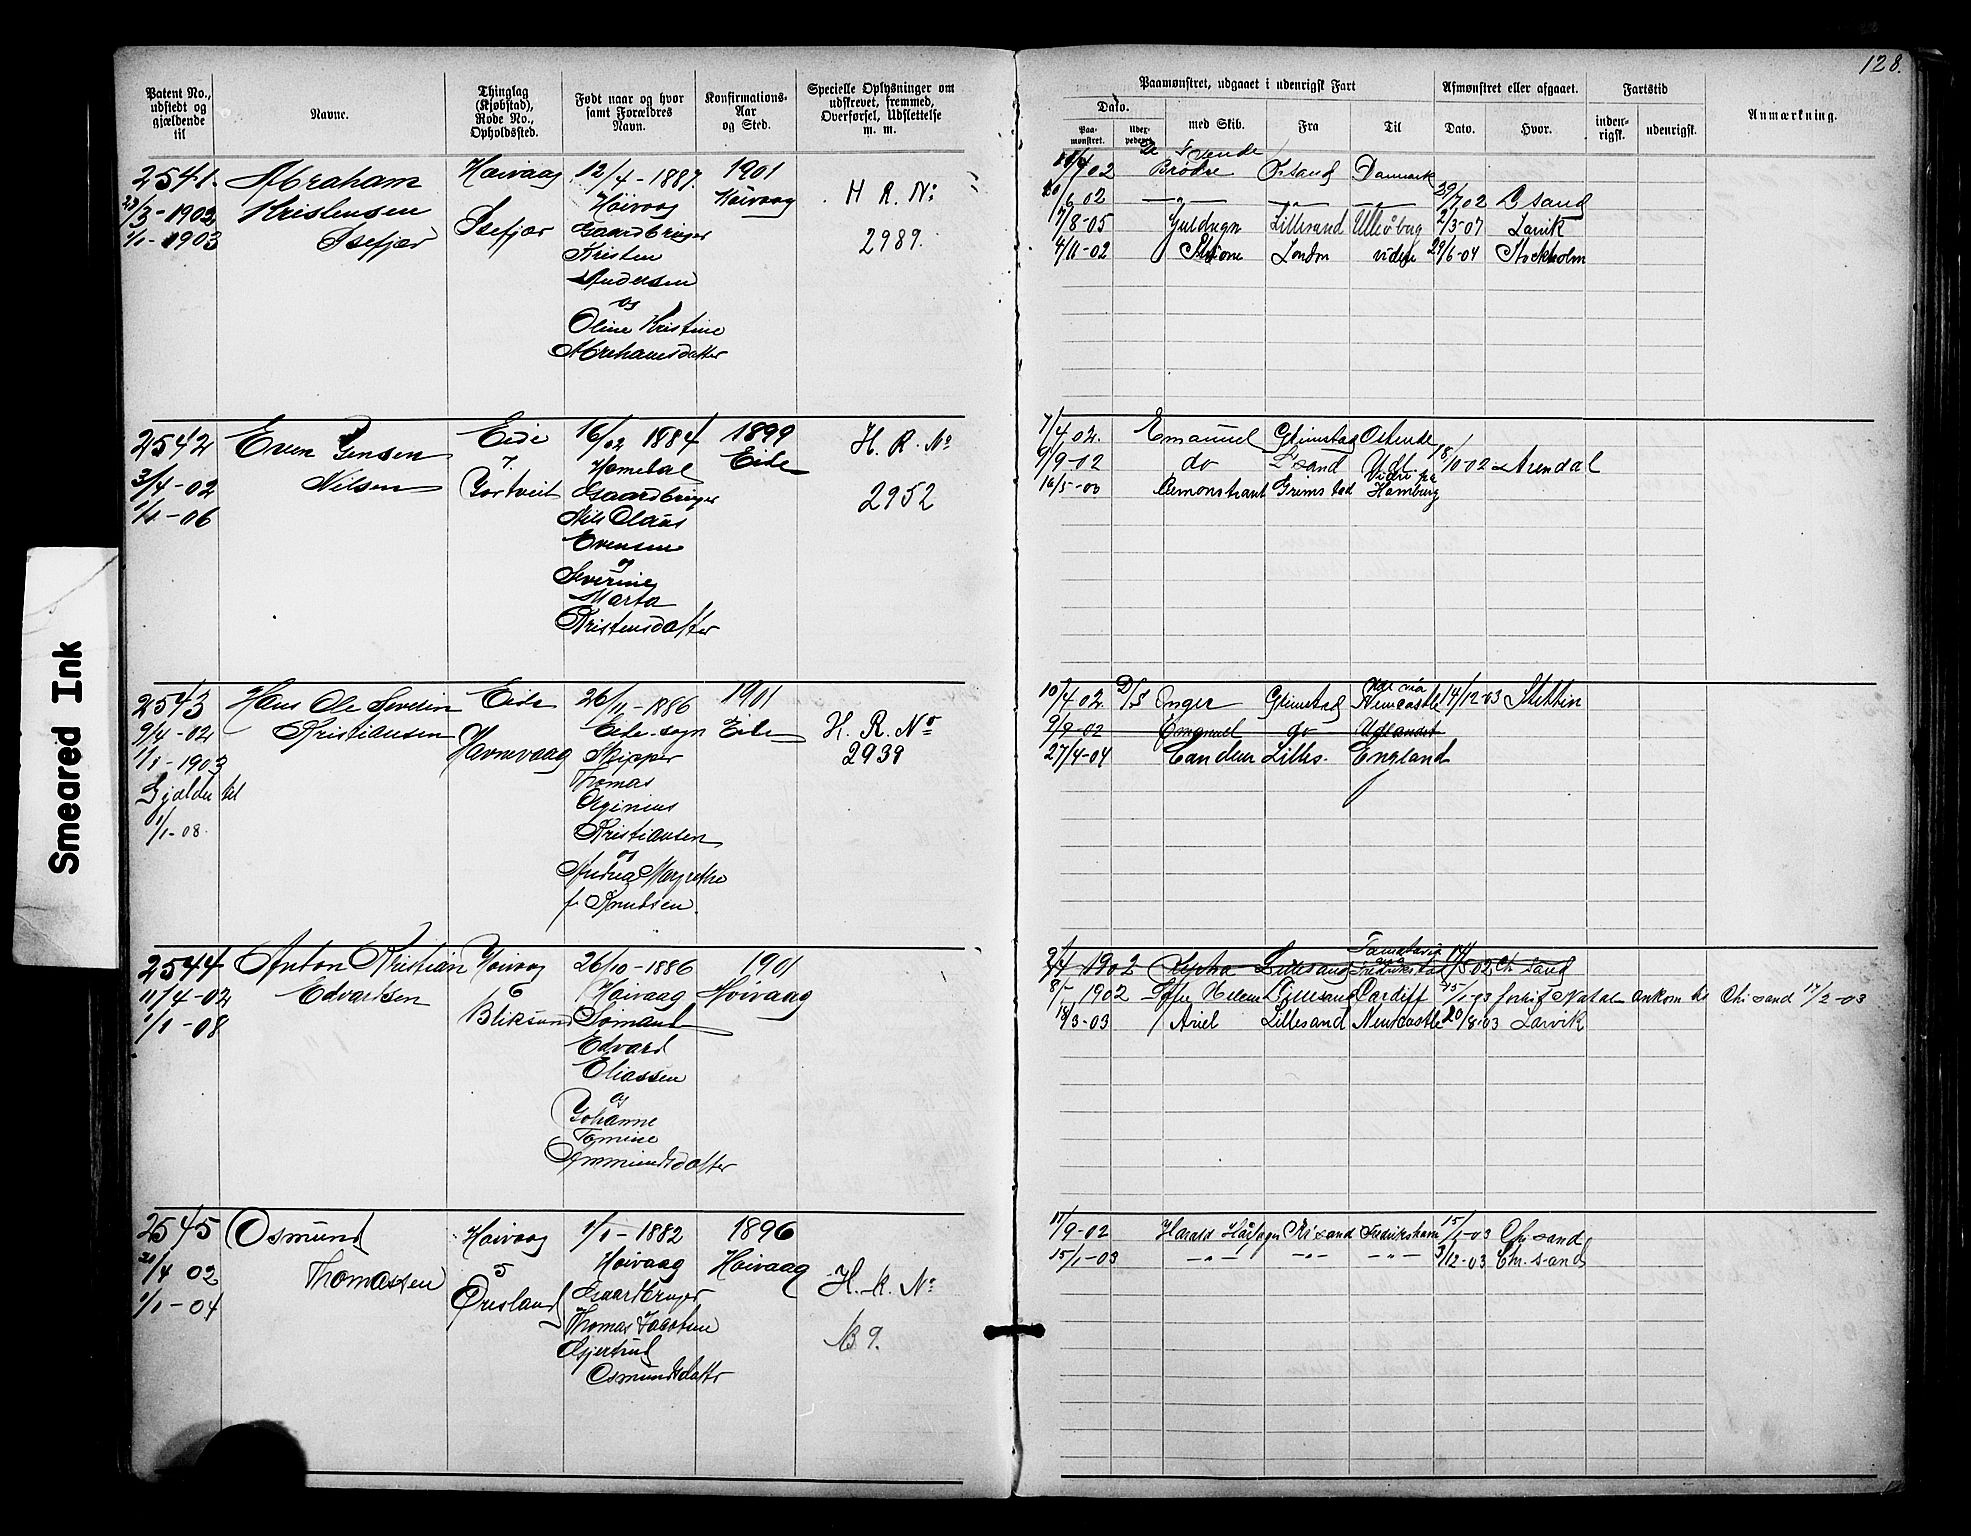 128.
Patent No., udstedt og gjældende til
Navne.
Thinglag (Kjøbstad), Rode No., Opholdssted.
Født naar og hvor samt Forældres Navn.
Konfirmations-Aar og Sted.
Specielle Oplysninger om udskrevet, fremmed, Overførsel, Udslettelse m. m.
Paamønstret, udgaaet i udenrigsk Fart
Dato.
Paamønstret.
med Skib.
Fra
Til
Afmønstret eller afgaaet.
Dato.
Hvor.
Fartstid
indenrigsk.
udenrigsk.
Anmærkning.
2541.
23/3-1902
1/1-1903
Abraham
Kristensen
Isefjær
Høivaag
Isefjær
12/4-1887.
Høivaag
Gaardbruger
Kristen
Andersen
og
Oline Kristine
Abrahamsdatter
1901
Høivaag
H. R. No
2989.
Brødre
Danmark
20/6 02
29/7 02
17/8-05 Lillesand 2/3-07 Larvik
4/11-02 London videre 29/6-04 Stockholm
2542
3/4-02
1/1-06
Even Jensen
Nilsen
Eide
7
Gortveit
16/02 1884
Homedal
Gaardbruger
Nils Olaus
Evensen
og
Severine
Marta
Kristensdatter
1899
Eide
H. R. No
2952
7/4 02. Emanuel Grimstad Ostende
9/9-02 do L'sand Udl. 18/10-02 Arendal
Grimstad Videre på Hamburg
2543
9/4-02
1/1-1903
Gjælder til
1/1-08.
Hans Ole Severin
Kristiansen
Eide
Havnevaag
26/11-1886
Eide sogn
Skipper
Thomas
Kristiansen
og
Andrea Margrethe
f. Knudsen.
1901
Eide
H. R. No
2939
10/4 02 D/S Unger Grimstad Newcastle 14/12-03 Stettin
9/9-02 Emanuel do Udlandet
27/4-04 Lilles. England
2544
11/4-02
1/1-08
Anton Kristian
Edvardsen
Høivaag
6
Bliksund
26/10-1886
Høivaag
Sømand
Edvard
Eliassen
og
Johanne
Tomine
Ammundsdatter
1901
Høivaag
1902 Alpha Lillesand Fredrikstad Ch sand
1902 Helene Lillesand Cardiff forlist Natal ankom til Chr sand 17/2-03
18/3-03 Ariel Lillesand Newcastle 20/8-03 Larvik
2545
21/4 02
1/1-04
Osmund
Thomassen
Høivaag
5
Øresland
1/1-1882
Høivaag
Gaardbruger
Thomas Jacobsen
Gjertrud
Osmundsdatter
1896
Høivaag
H. R. No
139.
11/9-02 Harald Hårfager Kr sand Fredrikshavn 15/1-03 Chr sand
15/1-03 3/12-03 Chr. sand
Smeared Ink